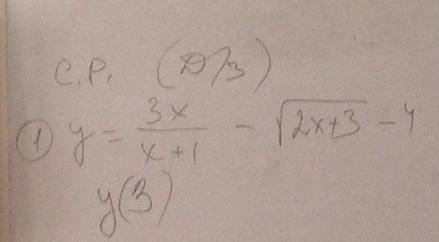 С.Р. (Д/З)
① y = \frac{3x}{x+1} - \sqrt{2x+3} - 4
y(3)